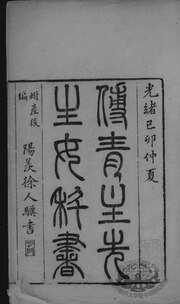 光緒己卯仲夏
傅青主先
生女科書
坿產後
編
陽羨徐人驥書